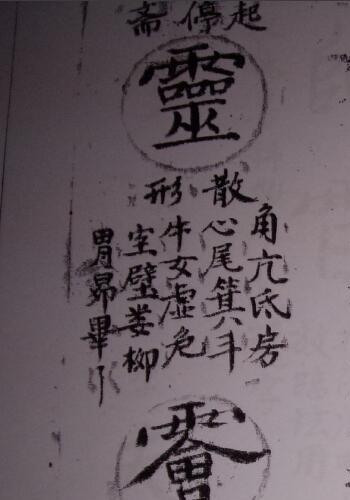 起停斋
靈
散形
角亢氐房
心尾箕八斗
牛女虛危
室壁娄柳
胃昴畢